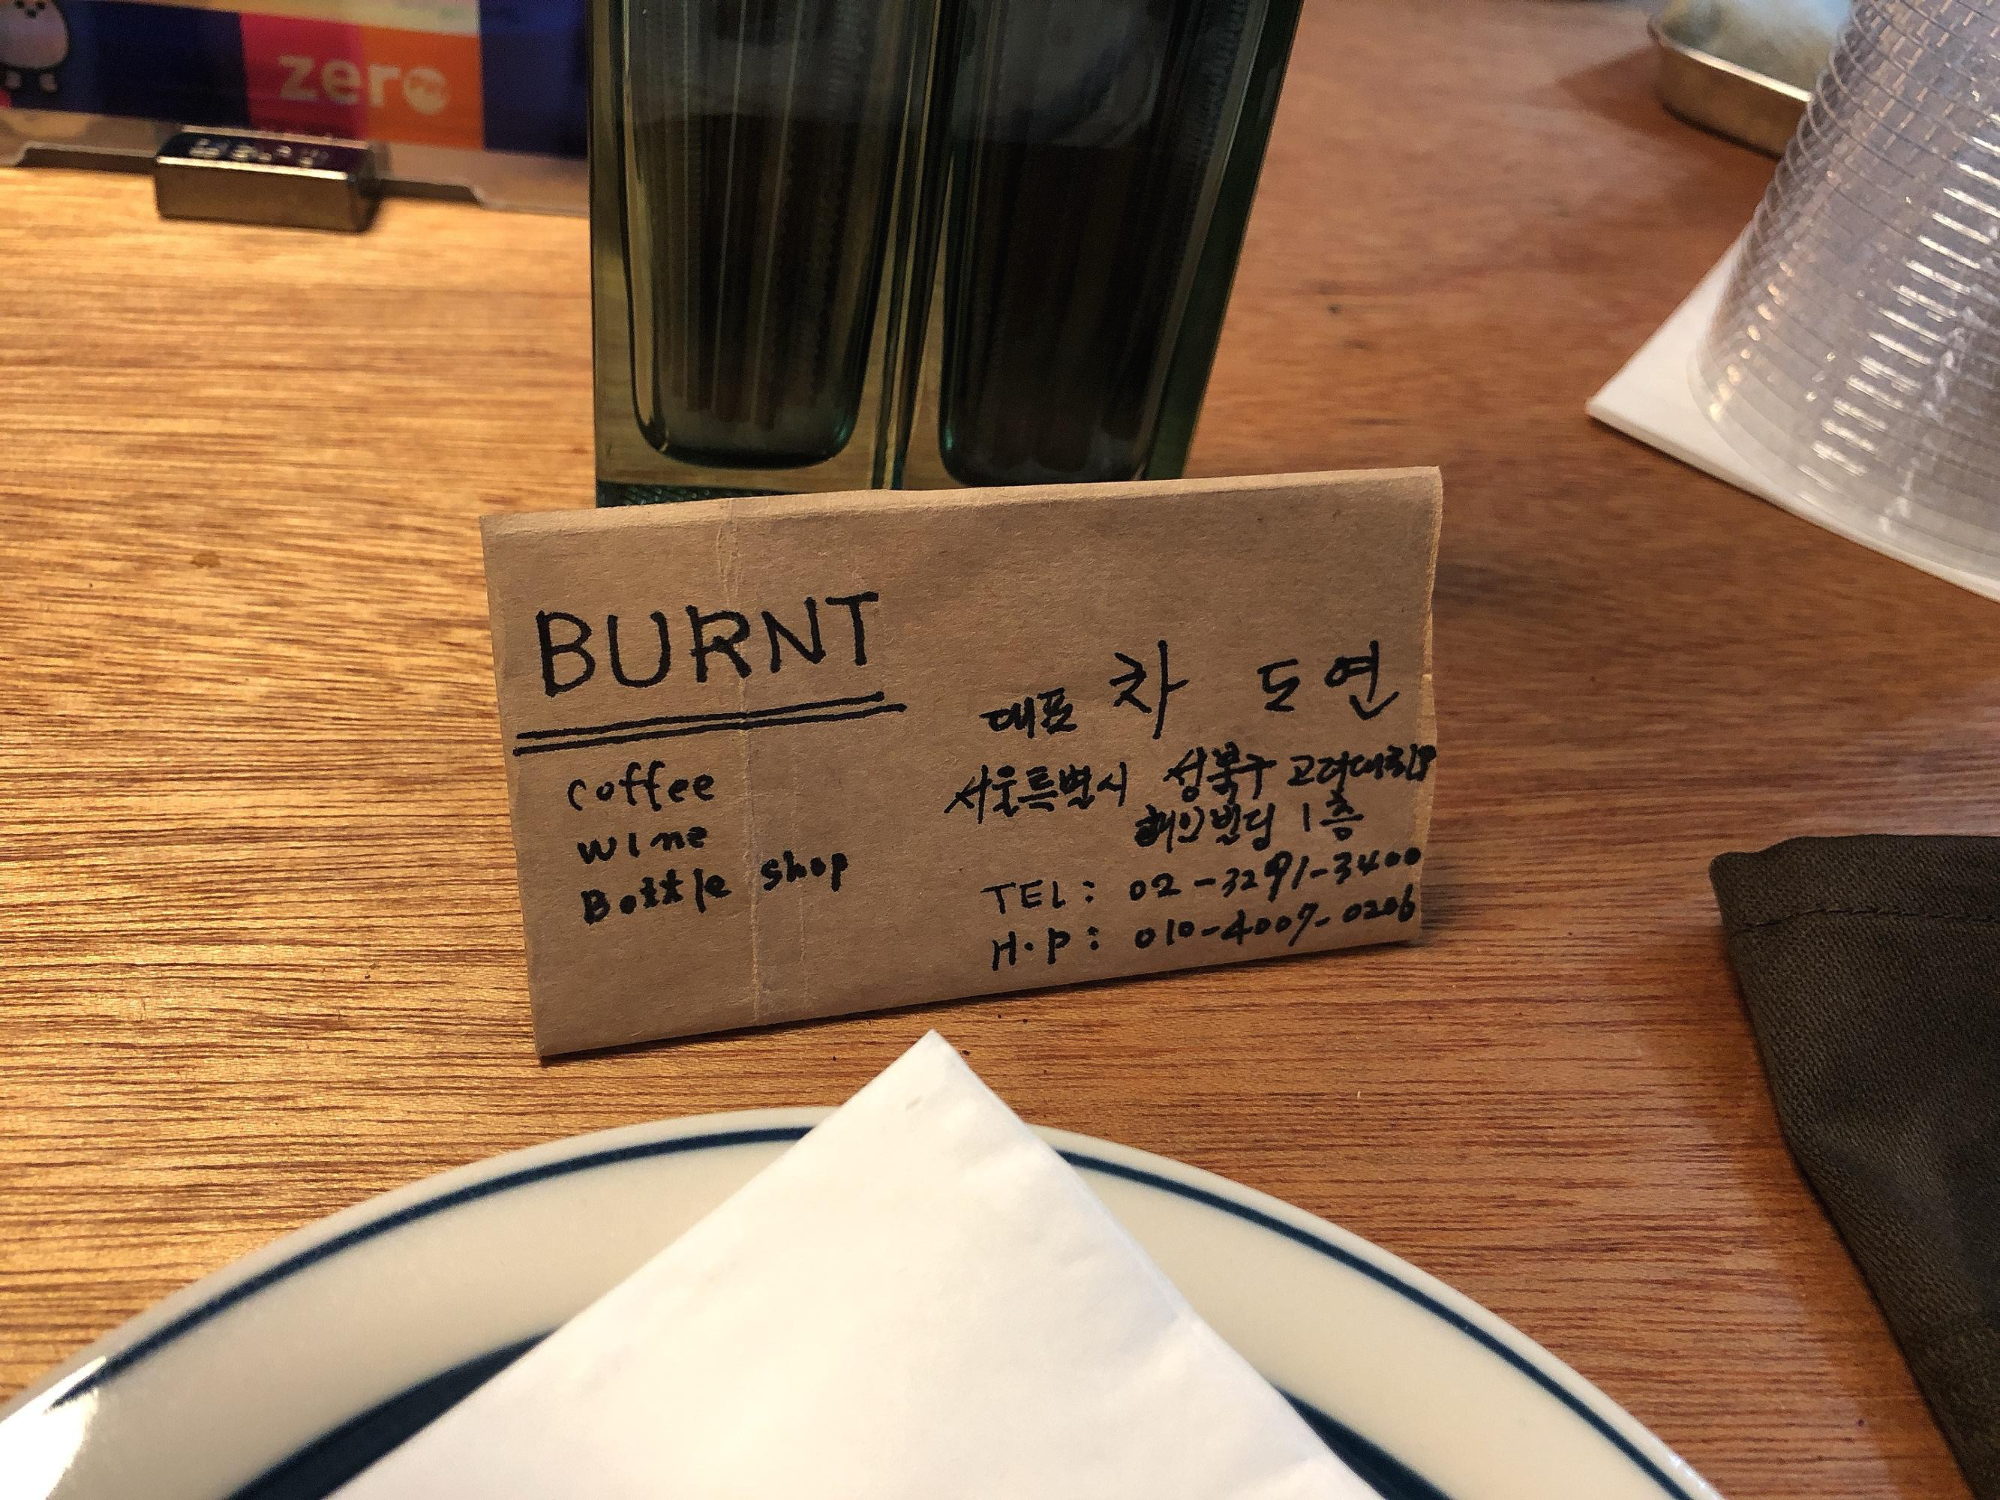 zero
BURNT
coffee
wine
Bottle shop
대표 차 도연
서울특별시 성북구 고려대로
해인빌딩 1층
TEL: 02-3291-3400
H.P: 010-4007-0206